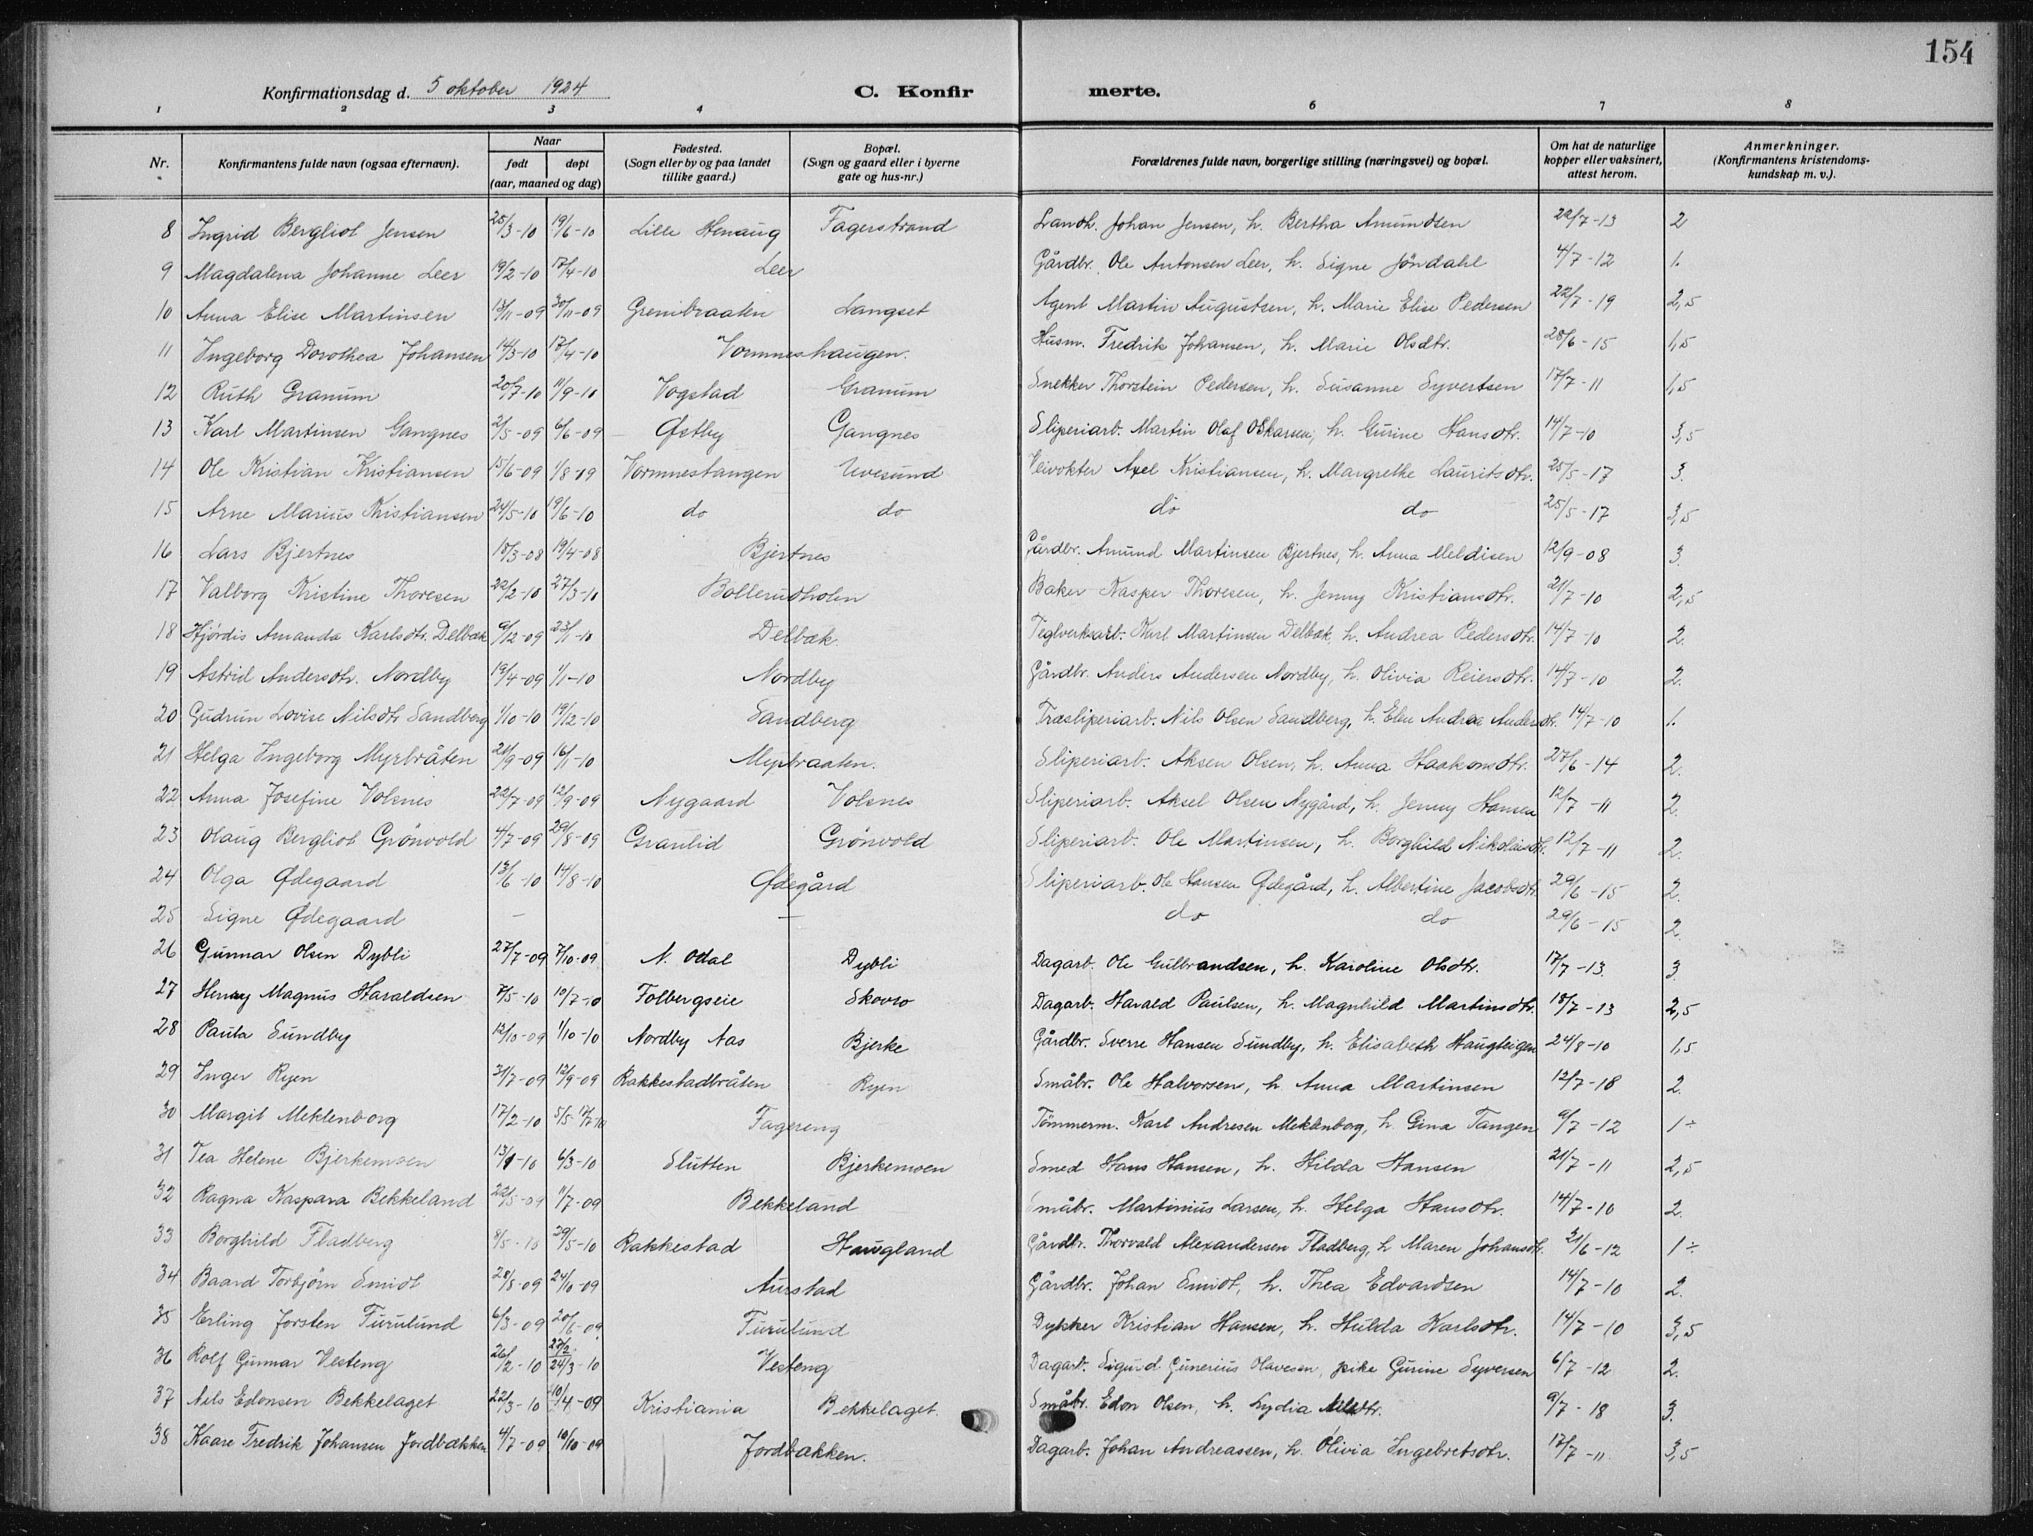 154
Konfirmationsdag d. 5 oktober 1924 C. Konfirmerte.
1 2 3 4 6 7 8
Nr. Konfirmantens fulde navn (ogsaa efternavn). Naar født døpt (aar, maaned og dag) Fødested. (Sogn eller by og paa landet tillike gaard.) Bopæl. (Sogn og gaard eller i byerne gate og hus-nr.) Forældrenes fulde navn, borgerlige stilling (næringsvei) og bopæl. Om hat de naturlige kopper eller vaksinert, attest herom. Anmerkninger. (Konfirmantens kristendomskundskap m. v.).
8 Ingrid Bergliot Jensen 25/3-10 19/6-10 Lille Henaug Fagerstrand Landh. Johan Jensen, h. Bertha Amundsen 22/7-13 2
9 Magdalena Johanne Leer 19/2-10 17/4-10 Leer Gårdbr. Ole Antonsen Leer, h. Signe Jöndahl 4/7-12 1.
10 Anna Elise Martinsen 13/11-09 30/11-09 Grenibraaten Langset Agent Martin Augustsen, h. Marie Elise Pedersen 22/7-19 2,5
11 Ingeborg Dorothea Johansen 14/3-10 17/4-10 Vormneshaugen. Husm. Fredrik Johansen, h. Marie Olsdtr. 28/6-15 1,5
12 Ruth Granum 20/7-10 11/9-10 Vogstad Granum Snekker Thorstein Pedersen, h. Susanne Syvertsen 17/7-11 1,5
13 Karl Martinsen Gangnes 2/5-09 6/6-09 Østby Gangnes Sliperiarb. Martin Olaf Oskarsen, h. Gurine Hansdtr. 14/7-10 3,5
14 Ole Kristian Kristiansen 15/6-09 1/8-09 Vormnestangen Uvesund Veivokter Axel Kristiansen, h. Margrethe Lauritsdtr. 25/5-17 3.
15 Arne Marius Kristiansen 24/5-10 19/6-10 do do do do 25/5-17 3,5
16 Lars Bjertnes 18/3-08 19/4-08 Bjertnes Gårdbr. Amund Martinsen Bjertnes, h. Anna Meldisen 12/9-08 3.
17 Valborg Kristine Thoresen 22/2-10 27/3-10 Bollerudholen Baker Kasper Thoresen, h. Jenny Kristiansdtr. 21/7-10 2,5
18 Hjördis Amanda Karlsdtr. Delbæk 9/12-09 23/1-10 Delbæk. Teglverksarb. Karl Martinsen Delbæk, h. Andrea Pedersdtr. 14/7-10 2.
19 Astrid Andersdtr. Nordby 19/4-09 1/1-10 Nordby Gårdbr. Anders Andersen Nordby, h. Olivia Reiersdtr. 14/7-10 2.
20 Gudrun Lovise Nilsdtr Sandberg 1/10-10 19/12-10 Sandberg Træsliperiarb. Nils Olsen Sandberg, h. Elen Andrea Andersdtr. 14/7-10 1.
21 Helga Ingeborg Myrbråten 21/9-09 16/1-10 Myrbraaten. Sliperiarb. Aksen Olsen, h. Anna Haakonsdtr. 27/6-14 2.
22 Anna Josefine Volsnes 22/7-09 12/9-09 Nygaard Volsnes Sliperiarb. Aksel Olsen Nygård, h. Jenny Hansen 12/7-11 2.
23 Olaug Bergliot Grönvold 4/7-09 29/8-09 Granlid Grönvold Sliperiarb. Ole Martinsen, h. Borghild Nikolaisdtr. 12/7-11 2.
24 Olga Ødegaard 13/6-10 14/8-10 Ødegård Sliperiarb. Ole Hansen Ødegård, h. Albertine Jacobsdtr. 29/6-15 2.
25 Signe Ødegaard — — do do 29/6-15 2
26 Gunnar Olsen Dybli 27/7-09 7/10-09 N. Odal Dybli Dagarb. Ole Gulbrandsen, h. Karoline Olsdtr. 17/7-13 3
27 Henry Magnus Haraldsen 7/5-10 10/7-10 Folbergseie Skovro Dagarb. Harald Paulsen, h. Magnhild Martinsdtr. 18/7-13 2,5
28 Paula Sundby 12/10-09 1/10-10 Nordby Aas Bjerke Gårdbr. Sverre Hansen Sundby, h. Elisabeth Haugteigen 24/8-10 1,5
29 Inger Ryen 31/7-09 12/9-09 Rakkestadbråten Ryen Småbr. Ole Halvorsen, h Anna Martinsen 12/7-18 2.
30 Margit Meklenborg 17/2-10 5/5 Fagereng Tömmerm. Karl Andresen Meklenborg, h Gina Tangen 9/7-12 1÷
31 Tea Helene Bjerkemoen 13/1-10 6/3-10 Slutten Bjerkemoen Smed Hans Hansen, h. Hilda Hansen 21/7-11 2,5
32 Ragna Kaspara Bekkeland 22/5-09 11/7-09 Bekkeland Småbr. Martinius Larsen, h. Helga Hansdtr. 14/7-10 2.
33 Borghild Fladberg 8/5-10 29/5-10 Rakkestad Haugland Gårdbr. Thorvald Alexandersen Fladberg, h Maren Johansdtr. 21/6-12 1÷
34 Baard Torbjörn Smidt 28/8-09 24/10-09 Aurstad Gårdbr. Johan Smidt, h. Thea Edvardsen 14/7-10 2.
35 Erling Torsten Furulund 6/3-09 20/6-09 Furulund Dykker Kristian Hansen, h. Hulda Karlsdtr. 14/7-10 3,5
36 Rolf Gunnar Vesteng 26/2-10 24/3-10 Vesteng Dagarb. Sigurd Gunerius Olavesen, pike Gurine Syversen 6/7-12 2.
37 Nils Edonsen Bekkelaget 22/3-10 10/4-09 Kristiania Bekkelaget. Småbr. Edon Olsen, h. Lydia Nilsdtr. 9/7-18 3.
38 Kaare Fredrik Johansen Jordbækken 4/7-09 10/10-09 Jordbækken. Dagarb. Johan Andreassen, h. Olivia Ingebretsdtr. 12/7-11 3,5